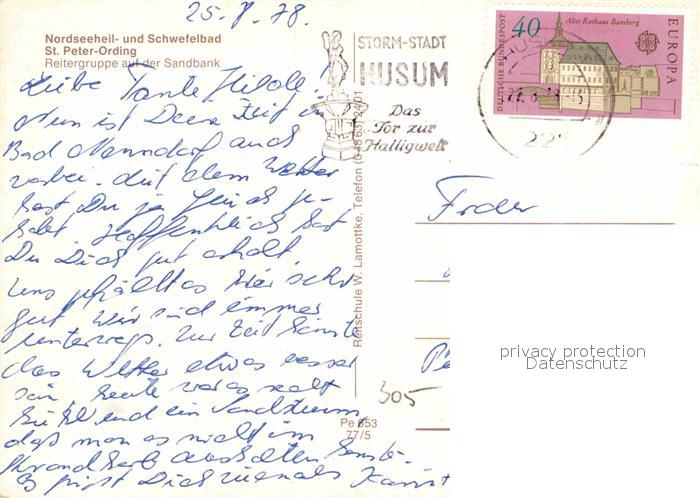 25.8.78.
Nordseeheil- und Schwefelbad
St. Peter-Ording
Reitergruppe auf der Sandbank
Liebe Tante Hilde!
Nun ist Deine Zeit in
Bad Nenndorf auch
vorbei. Mit dem Wetter
hast Du ja Glück ge-
habt. Hoffentlich hast
Du Dich gut erholt.
Uns gefällt es hier sehr
gut. Wir sind immer
unterwegs. Zur Zeit könnte
das Wetter etwas besser
sein, heute war es recht
kühl und ein Sandsturm,
daß man es nicht im
Strandkorb aushalten konnte.
Es grüßt Dich
STORM-STADT
HUSUM
Das
Tor zur
Halligwelt
DEUTSCHE BUNDESPOST
40
Altes Rathaus Bamberg
EUROPA
HUSUM
225
Reitschule W. Lamottke, Telefon (0 48 63) 24 01
Frau
305
Pe 653
77/5
privacy protection
Datenschutz